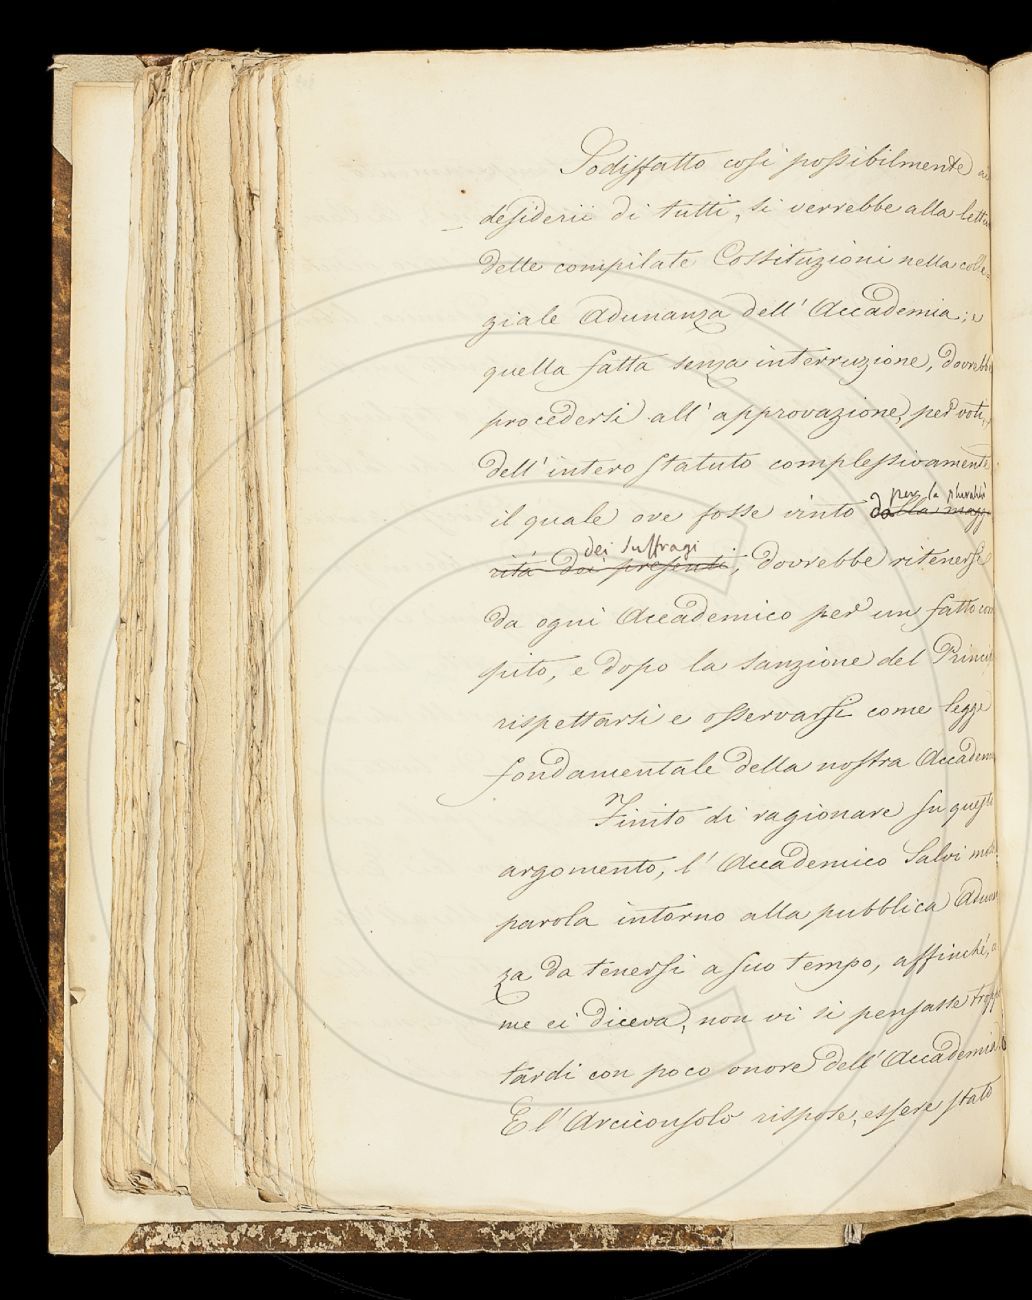 Sodisfatto così possibilmente ai
desiderii di tutti, si verrebbe alla lettu
delle compilate Costituzioni nella colle=
giale Adunanza dell' Accademia; e
quella fatta senza interruzione, dovrebbe
procedersi all' approvazione, per voti,
dell' intero statuto complessivamente
il quale ove fosse vinto per la pluralità
dalla magg
dei suffragi
rità dei presenti, dovrebbe ritenersi
da ogni Accademico per un fatto com
pito, e dopo la sanzione del Princi
rispettarsi e osservarsi come legge
fondamentale della nostra Accadem
Finito di ragionare su questo
argomento, l' Accademico Salvi
parola intorno alla pubblica Adunan
za da tenersi a suo tempo, affinché,
me ei diceva, non vi si pensasse troppo
tardi con poco onore dell' Accademia.
E l' Arciconsolo rispose, essere stato